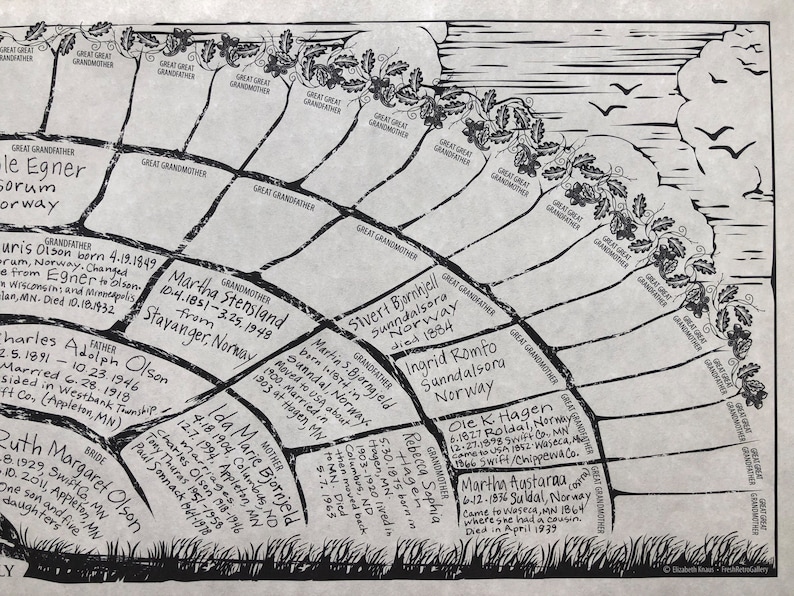 GREAT GREAT
GRANDFATHER
GREAT GREAT
GRANDMOTHER
GREAT GREAT
GRANDFATHER
GREAT GREAT
GRANDMOTHER
GREAT GREAT
GRANDFATHER
GREAT GREAT
GRANDMOTHER
GREAT GREAT
GRANDFATHER
GREAT GREAT
GRANDMOTHER
GREAT GREAT
GRANDFATHER
GREAT GREAT
GRANDMOTHER
GREAT GREAT
GRANDFATHER
GREAT GREAT
GRANDMOTHER
GREAT GREAT
GRANDFATHER
GREAT GREAT
GRANDMOTHER
GREAT GRANDFATHER
Egner
orum
orway
GREAT GRANDMOTHER
GREAT GRANDFATHER
GREAT GRANDMOTHER
GREAT GRANDFATHER
Sivert Bjørnhjell
Sunndalsora
Norway
died 1884
GREAT GRANDMOTHER
Ingrid Romfo
Sunndalsora
Norway
GREAT GRANDFATHER
Ole K. Hagen
6.1827 Roldal, Norway
12.27.1898 Swift Co., MN
came to USA 1852. Waseca, MN
1866 Swift/Chippewa Co.
GREAT GRANDMOTHER
Martha Austaraa
6.12.1836 Suldal, Norway
Came to Waseca, MN 1864
where she had a cousin.
Died in April 1939
GRANDFATHER
uris Olson born 4.19.1849
orum, Norway. Changed
e from Egner to Olson.
n Wisconsin; and Minneapolis,
lan, MN. Died 10.18.1932
GRANDMOTHER
Martha Stensland
10.4.1851 - 3.25.1948
from
Stavanger, Norway
GRANDFATHER
Martin S. Bjornfjeld
born 6.1871 in
Sunndal, Norway.
Moved to USA about
1900. Married in
1903 at Hagen, MN
GRANDMOTHER
Rebecca Sophia
Hagen
5.30.1875 born in
Hagen, MN.
1907-1920 lived in
Columbus, ND
then moved back
to MN. Died
5.7.1963
FATHER
Charles Adolph Olson
2.5.1891 - 10.23.1946
Married 6.28.1918
esided in Westbank Township
ift Co., (Appleton, MN)
MOTHER
Ida Marie Bjornfjeld
4.18.1904 Columbus, ND
12.7.1994 Appleton, MN
Marriages:
Charles Olson 1918-1946
Tony Pharas 1957-1958
Paul Sonstack 1967-1978
BRIDE
Ruth Margaret Olson
8.1929, Swift Co, MN
10.2011, Appleton, MN
One son and five
daughters
LY
© Elizabeth Knaus • FreshRetroGallery